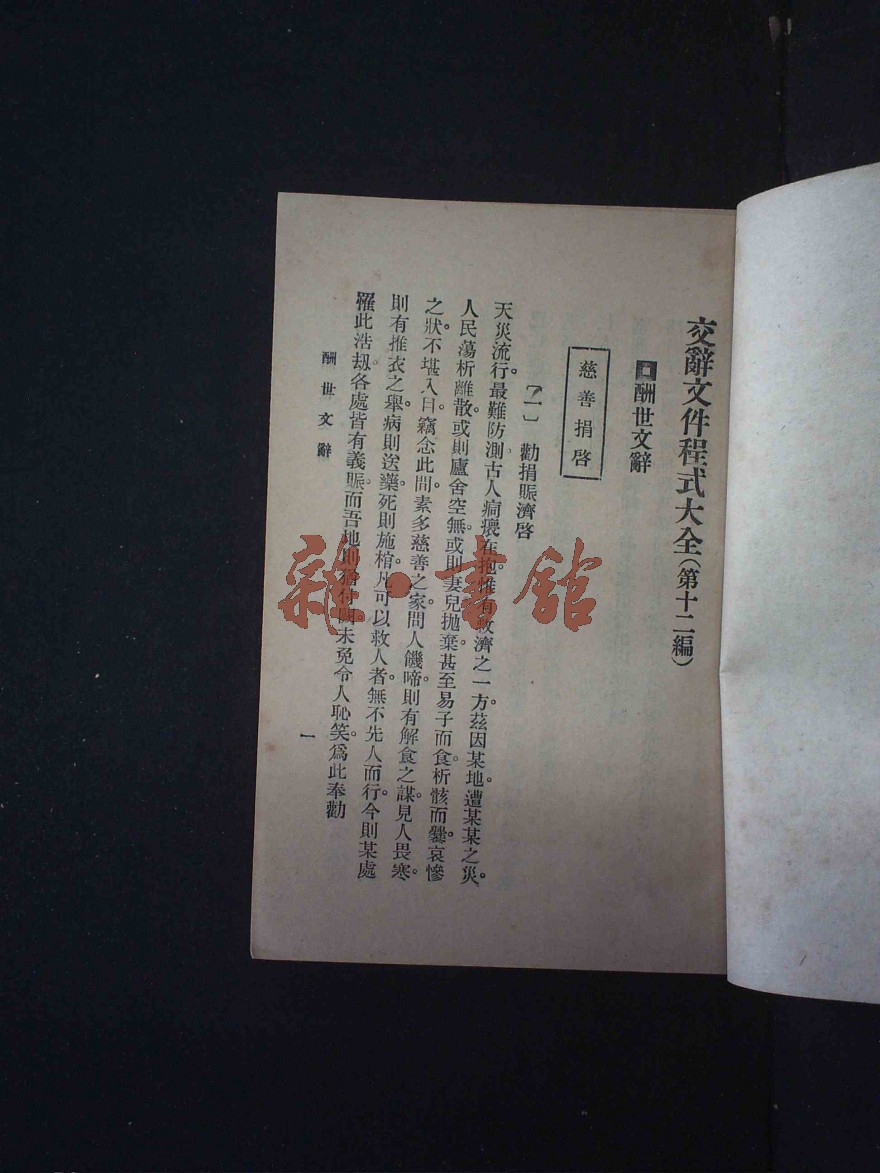 交辭文件程式大全(第十二編)
酬世文辭
慈善捐啓
(一) 勸捐賑濟啓
天災流行。最難防測。古人痌瘝在抱。惟有救濟之一方。茲因某地。遭某某之災。
人民蕩析離散。或則廬舍空無。或則妻兒拋棄。甚至易子而食。析骸而爨。哀慘
之狀。不堪入目。竊念此間素多慈善之家。問人饑啼。則有解食之謀。見人畏寒。
則有推衣之舉。病則送藥。死則施棺。凡可以救人者。無不先人而行。今則某處
罹此浩刼。各處皆有義賑。而吾地則猶付闕未免令人恥笑。爲此奉勸
酬世文辭
一
雜·書館